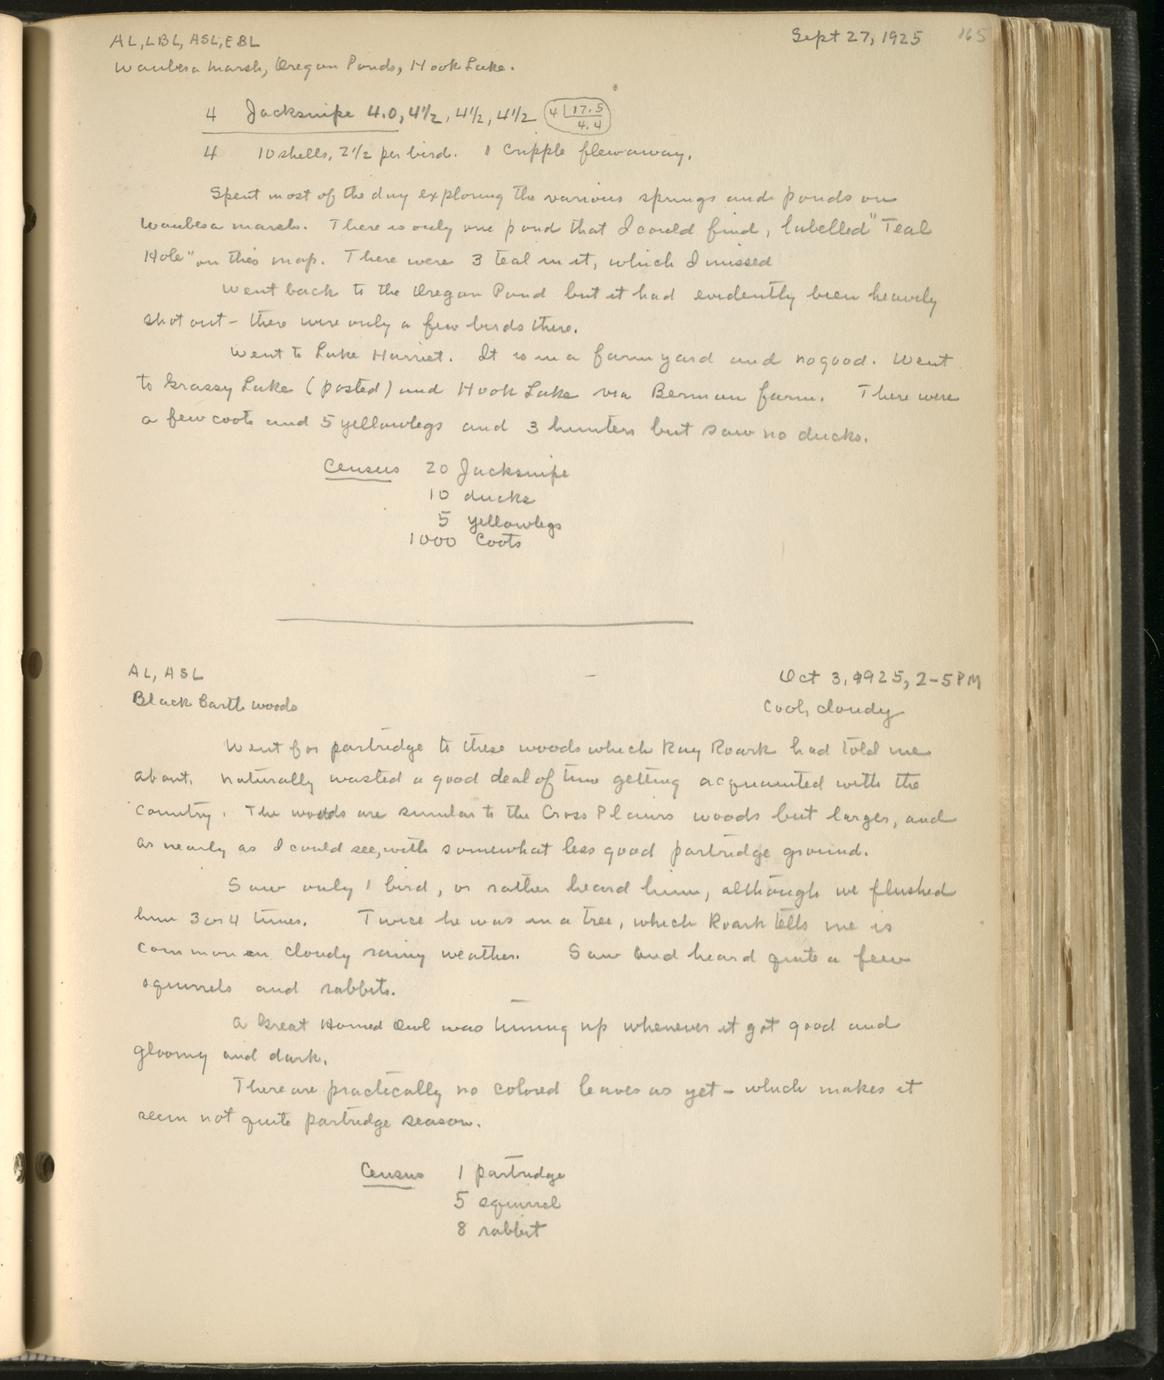 AL, LBL, ASL, EBL
Sept 27, 1925
165
Waubesa Marsh, Oregon Ponds, Hook Lake.
4 Jacksnipe 4.0, 4½, 4½, 4½ 4 | 17.5
4.4
4 10 shells, 2½ per bird. 1 cripple flew away.
Spent most of the day exploring the various springs and ponds on
Waubesa marsh. There is only one pond that I could find, labelled "Teal
Hole" on this map. There were 3 teal in it, which I missed
Went back to the Oregon Pond but it had evidently been heavily
shot out - there were only a few birds there.
Went to Lake Harriet. It is in a farm yard and no good. Went
to Grassy Lake (posted) and Hook Lake via Berman farm. There were
a few coots and 5 yellowlegs and 3 hunters but saw no ducks.
Census 20 Jacksnipe
10 ducks
5 yellowlegs
1000 Coots
AL, ASL
Oct 3, 1925, 2-5 PM
Black Earth woods
Cool, cloudy
Went for partridge to these woods which Ray Roark had told me
about. Naturally wasted a good deal of time getting acquainted with the
country. The woods are similar to the Cross Plains woods but larger, and
as nearly as I could see, with somewhat less good partridge ground.
Saw only 1 bird, or rather heard him, although we flushed
him 3 or 4 times. Twice he was in a tree, which Roark tells me is
common on cloudy rainy weather. Saw and heard quite a few
squirrels and rabbits.
A Great Horned Owl was tuning up whenever it got good and
gloomy and dark.
There are practically no colored leaves as yet - which makes it
seem not quite partridge season.
Census 1 partridge
5 squirrel
8 rabbit